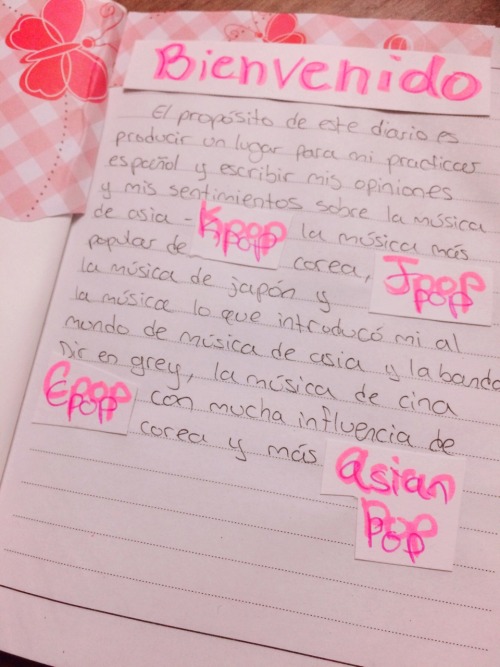 Bienvenido
El propósito de este diario es
producir un lugar para mi practicar
español y escribir mis opiniones
y mis sentimientos sobre la música
de asia - Kpop la música más
popular de corea, Jpop
la música de japón y
la música lo que introducó mi al
mundo de música de asia y la banda
Dir en grey, la música de cina
Cpop con mucha influencia de
corea y más asian
pop